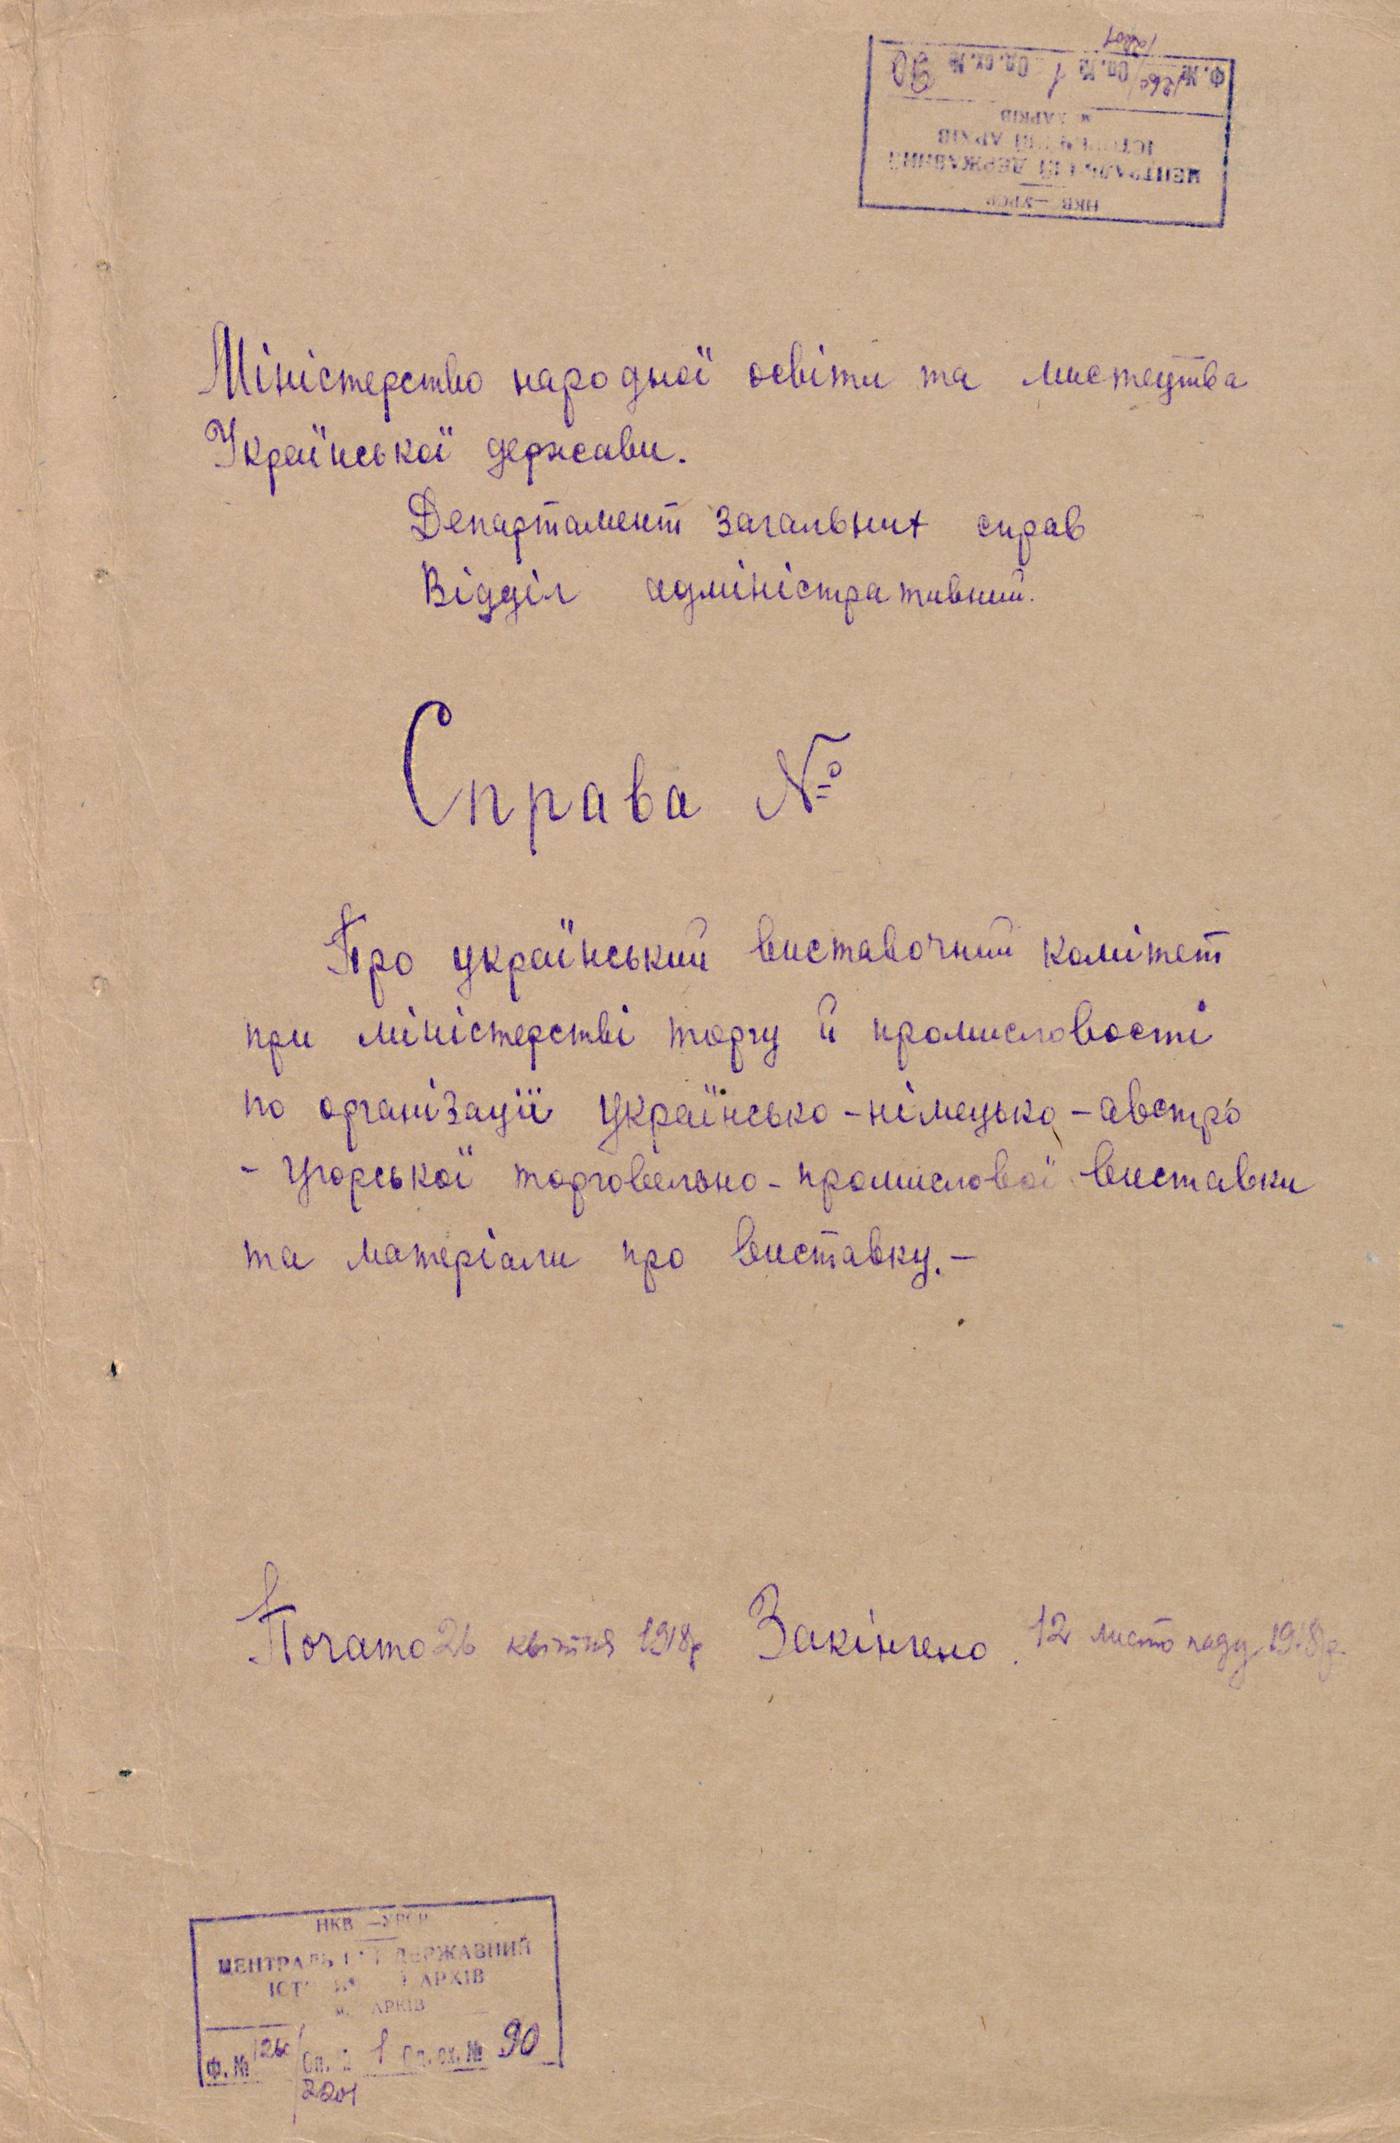 НКВ—УРСР
ЦЕНТРАЛЬНИЙ ДЕРЖАВНИЙ
ІСТОРИЧНИЙ АРХІВ
м. ХАРКІВ
Ф. № 1260 Оп. № 1 Од. зх. № 90
Міністерство народньої освіти та мистецтва
Української держави.
Департамент загальних справ
Відділ адміністративний.
Справа №
Про український виставочний комітет
при міністерстві торгу й промисловості
по організації українсько-німецько-австро
-угорської торговельно-промислової виставки
та матеріали про виставку.-
Почато 26 квітня 1918р Закінчено. 12 листопаду 1918р.
НКВ—УРСР
ЦЕНТРАЛЬНИЙ ДЕРЖАВНИЙ
ІСТОРИЧНИЙ АРХІВ
м. ХАРКІВ
Ф. № 1260 Оп. № 1 Од. зх. № 90
2201